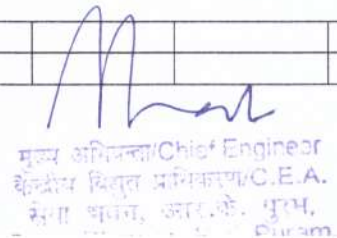 मुख्य अभियन्ता/Chief Engineer
केन्द्रीय विद्युत प्राधिकरण/C.E.A.
सेवा भवन, आर.के. पुरम,
Puram